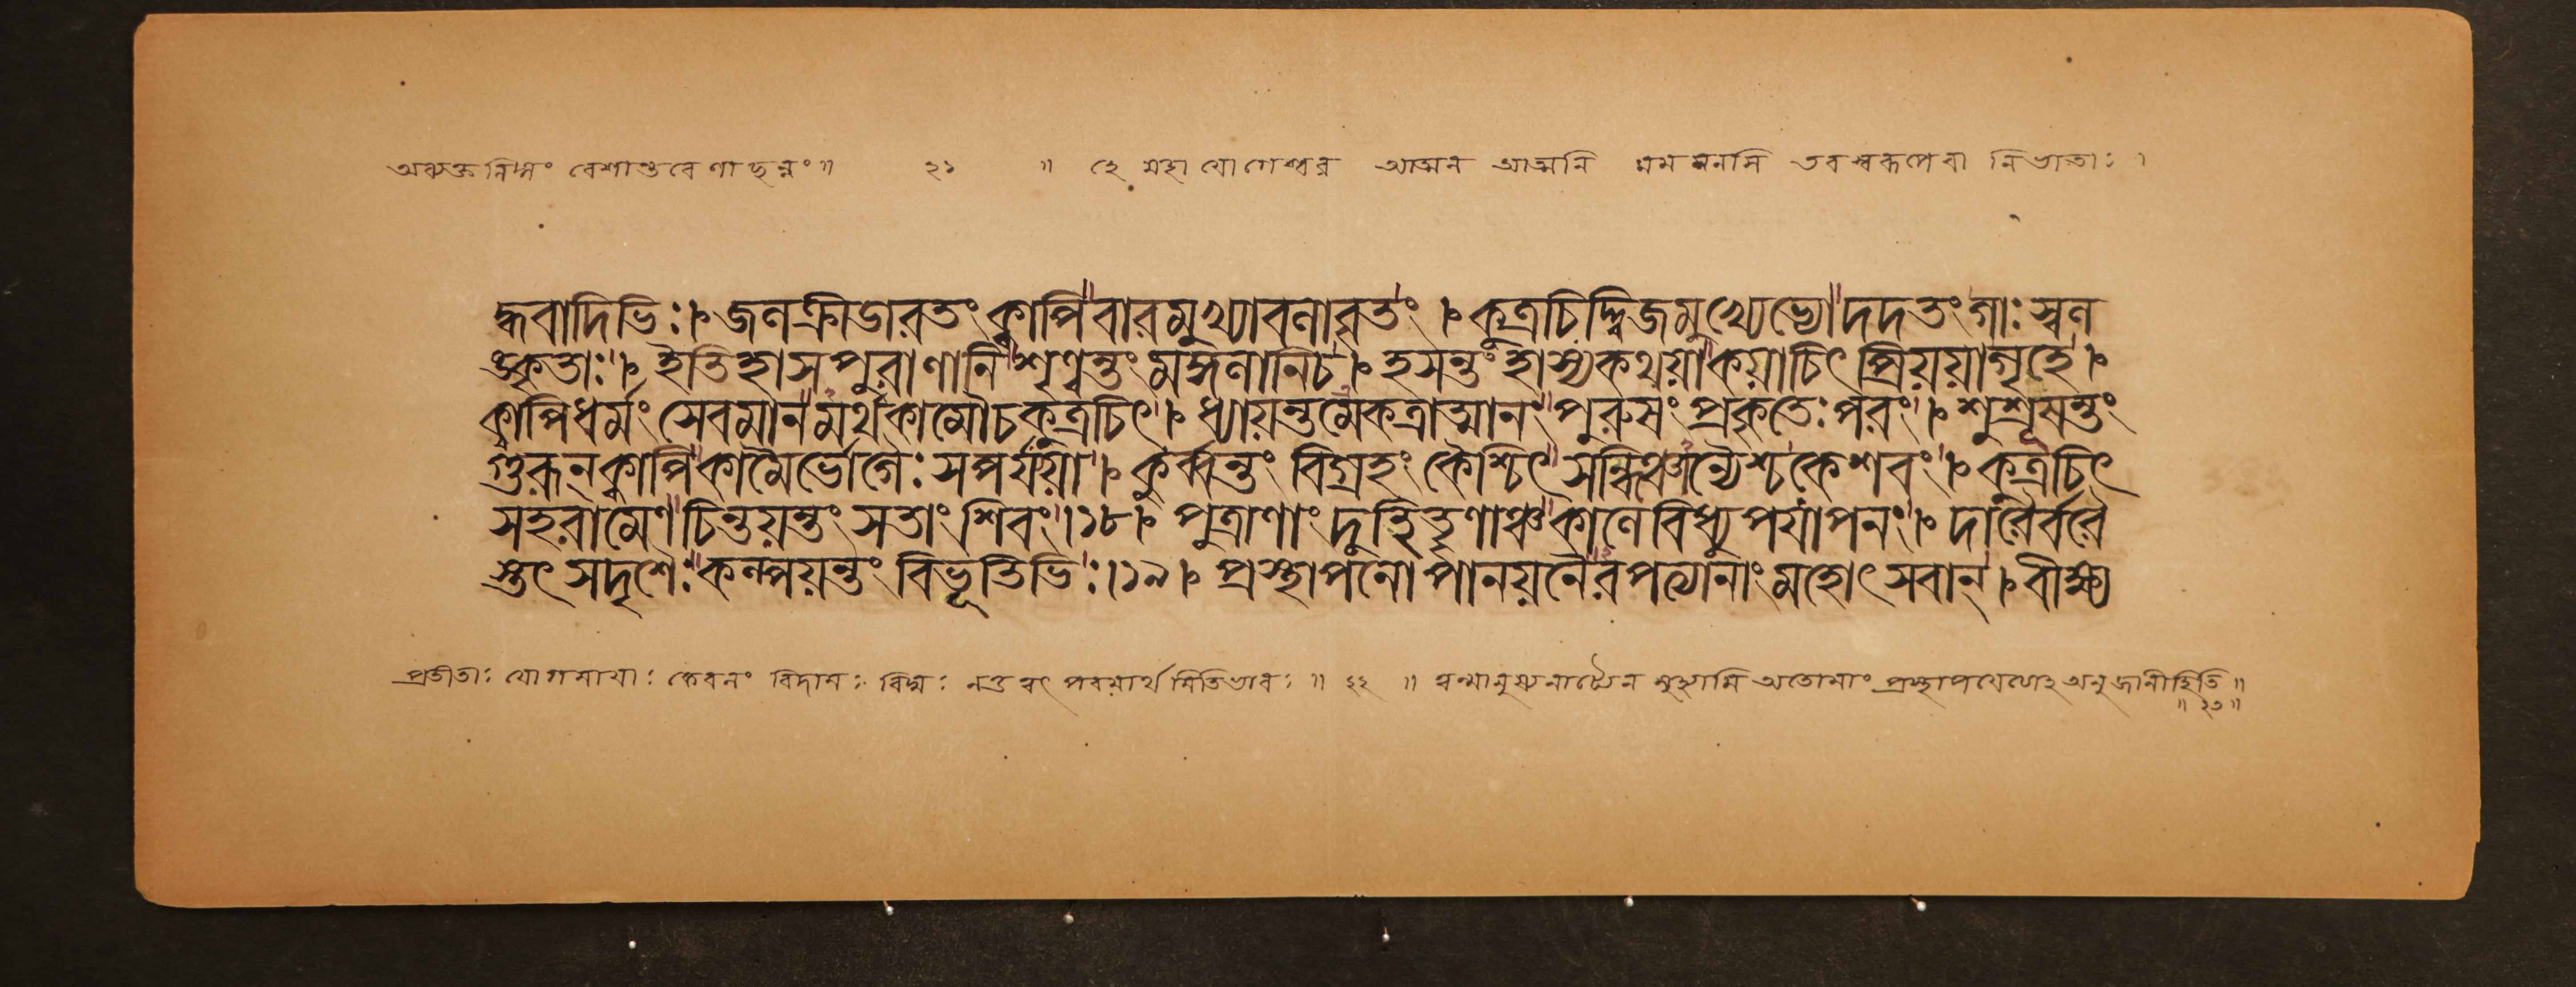 অব্যক্তনিদ্গং বেশান্তবেণাছন্নং॥ ২১ ॥ হে মহাযোগেশ্বর আত্মন আত্মনি মম মনসি তব স্বরূপেবা নির্ভাতাঃ ।
দ্ধবাদিভিঃ।৷ জলক্রীডারতং ক্বাপি বারমুখ্যাবলাবৃতং ।৷ কুত্রচিদ্দ্বিজমুখ্যেভ্যো দদতং গাঃ স্বল
ঙ্কৃতাঃ।৷ ইতিহাসপুরাণানি শৃণ্বন্তং মঙ্গলানিচ।৷ হসন্তং হাস্যকথয়া কয়াচিৎ প্রিয়য়া গৃহে।৷
ক্বাপি ধর্মং সেবমানমর্থকামৌচ কুত্রচিৎ।৷ ধ্যায়ন্তমেকত্রাত্মানং পুরুষং প্রকৃতেঃ পরং।৷ শুশ্রূষন্তং
গুরূন্ ক্বাপি কামৈর্ভোগৈঃ সপর্যয়া।৷ কুর্ব্বন্তং বিগ্রহং কৈশ্চিৎ সন্ধিঞ্চান্যৈশ্চ কেশবং।৷ কুত্রচিৎ
সহরামেণ চিন্তয়ন্তং সতাং শিবং।১৮।৷ পুত্রাণাং দুহিতৄণাঞ্চ কালে বিধ্যুপযাপনং।৷ দারৈর্বরৈ
স্তৎ সদৃশৈঃ কল্পয়ন্তং বিভূতিভিঃ।১৯।৷ প্রস্থাপনোপানয়নৈরপত্যানাং মহোৎসবান্।৷ বীক্ষ্য
প্রতীতাঃ যোগমায়াঃ কেবলং বিদামঃ বিদ্মঃ নতু তৎ পরমার্থমিতিভাবঃ ॥ ২২ ॥ ত্বন্মানুষ্যনাট্যেন মুহ্যামি অতোমাং প্রস্থাপয়েত্যাহ অনুজানীহিতি॥
॥ ২৩॥